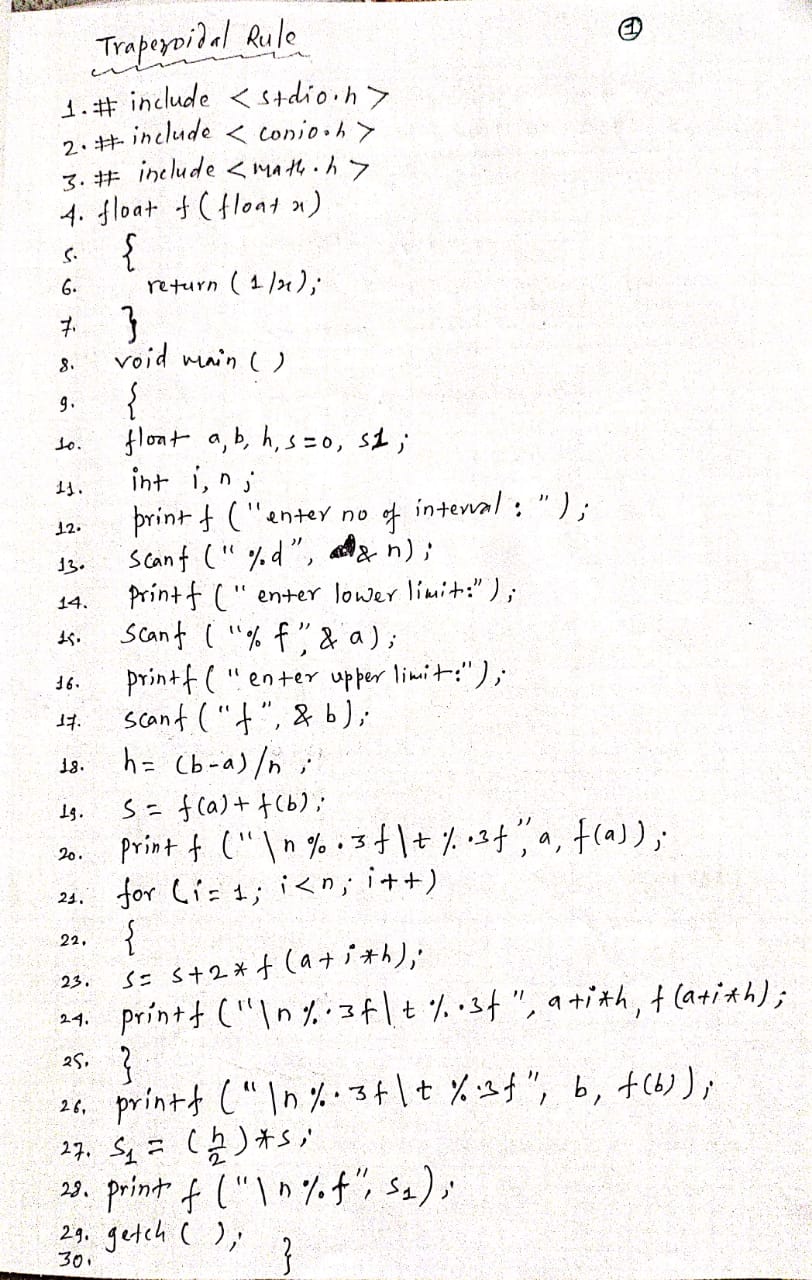 Trapezoidal Rule
①
1. # include < stdio.h >
2. # include < conio.h >
3. # include < math.h >
4. float f ( float x )
5. {
6. return ( 1/x );
7. }
8. void main ( )
9. {
10. float a, b, h, s=0, s1 ;
11. int i, n ;
12. printf ("enter no of interval : " ) ;
13. Scanf (" %d", & n) ;
14. Printf (" enter lower limit:" ) ;
15. Scanf ( "% f", & a ) ;
16. printf ( " enter upper limit:" ) ;
17. scanf ( "f", & b ) ;
18. h = (b-a) /n ;
19. S = f(a) + f(b) ;
20. print f ("\n % .3f \t % .3f", a, f(a)) ;
21. for (i = 1; i<n; i++)
22. {
23. S = S+2 * f (a + i*h) ;
24. printf ("\n %.3f \t %.3f ", a +i*h, f (a+i*h) ;
25. }
26. printf ("\n %.3f \t %.3f", b, f(b) ) ;
27. S1 = (h/2) *S ;
28. print f ("\n % f", S1 ) ;
29. getch ( ) ;
30. }